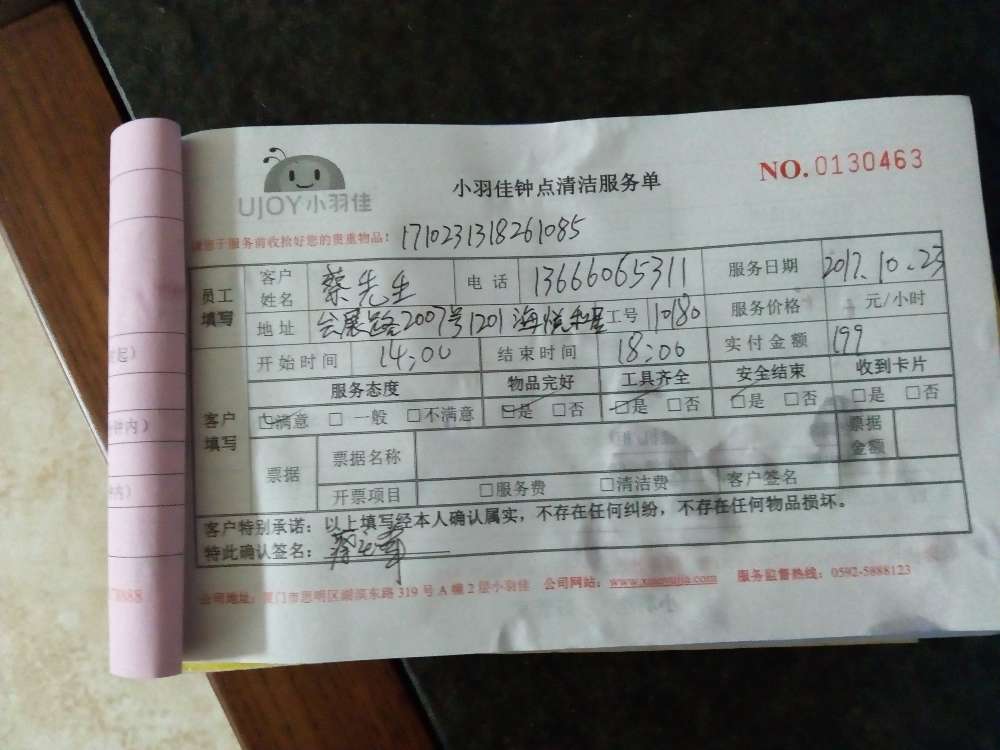 UJOY小羽佳
小羽佳钟点清洁服务单
NO.0130463
于服务前收拾好您的贵重物品: 1710231318261085
员工填写 客户姓名 蔡先生 电话 13666065311 服务日期 2017.10.23
地址 会展路2007号1201海悦 工号 10180 服务价格 元/小时
开始时间 14:00 结束时间 18:00 实付金额 199
客户填写 服务态度 物品完好 工具齐全 安全结束 收到卡片
□满意 □一般 □不满意 □是 □否 □是 □否 □是 □否 □是 □否
票据 票据名称 票据金额
开票项目 □服务费 □清洁费 客户签名
客户特别承诺: 以上填写经本人确认属实,不存在任何纠纷,不存在任何物品损坏。
特此确认签名:
公司地址: 厦门市思明区湖滨东路319号A幢2层小羽佳 公司网站: www.xiaoyujia.com 服务监督热线: 0592-5888123
起)
钟内)
内)
8888